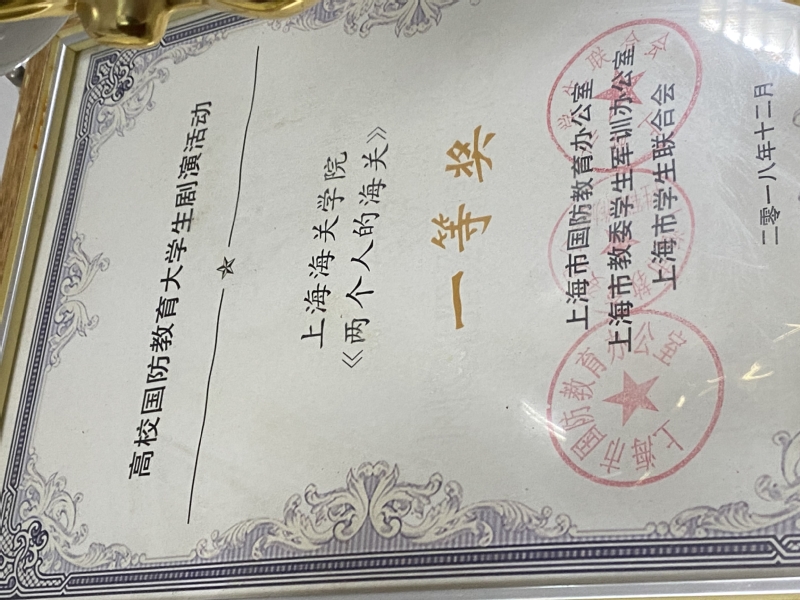 高校国防教育大学生剧演活动
上海海关学院
《两个人的海关》
一等奖
上海市国防教育办公室
上海市教委学生军训办公室
上海市学生联合会
二零一八年十二月
上海市国防教育办公室